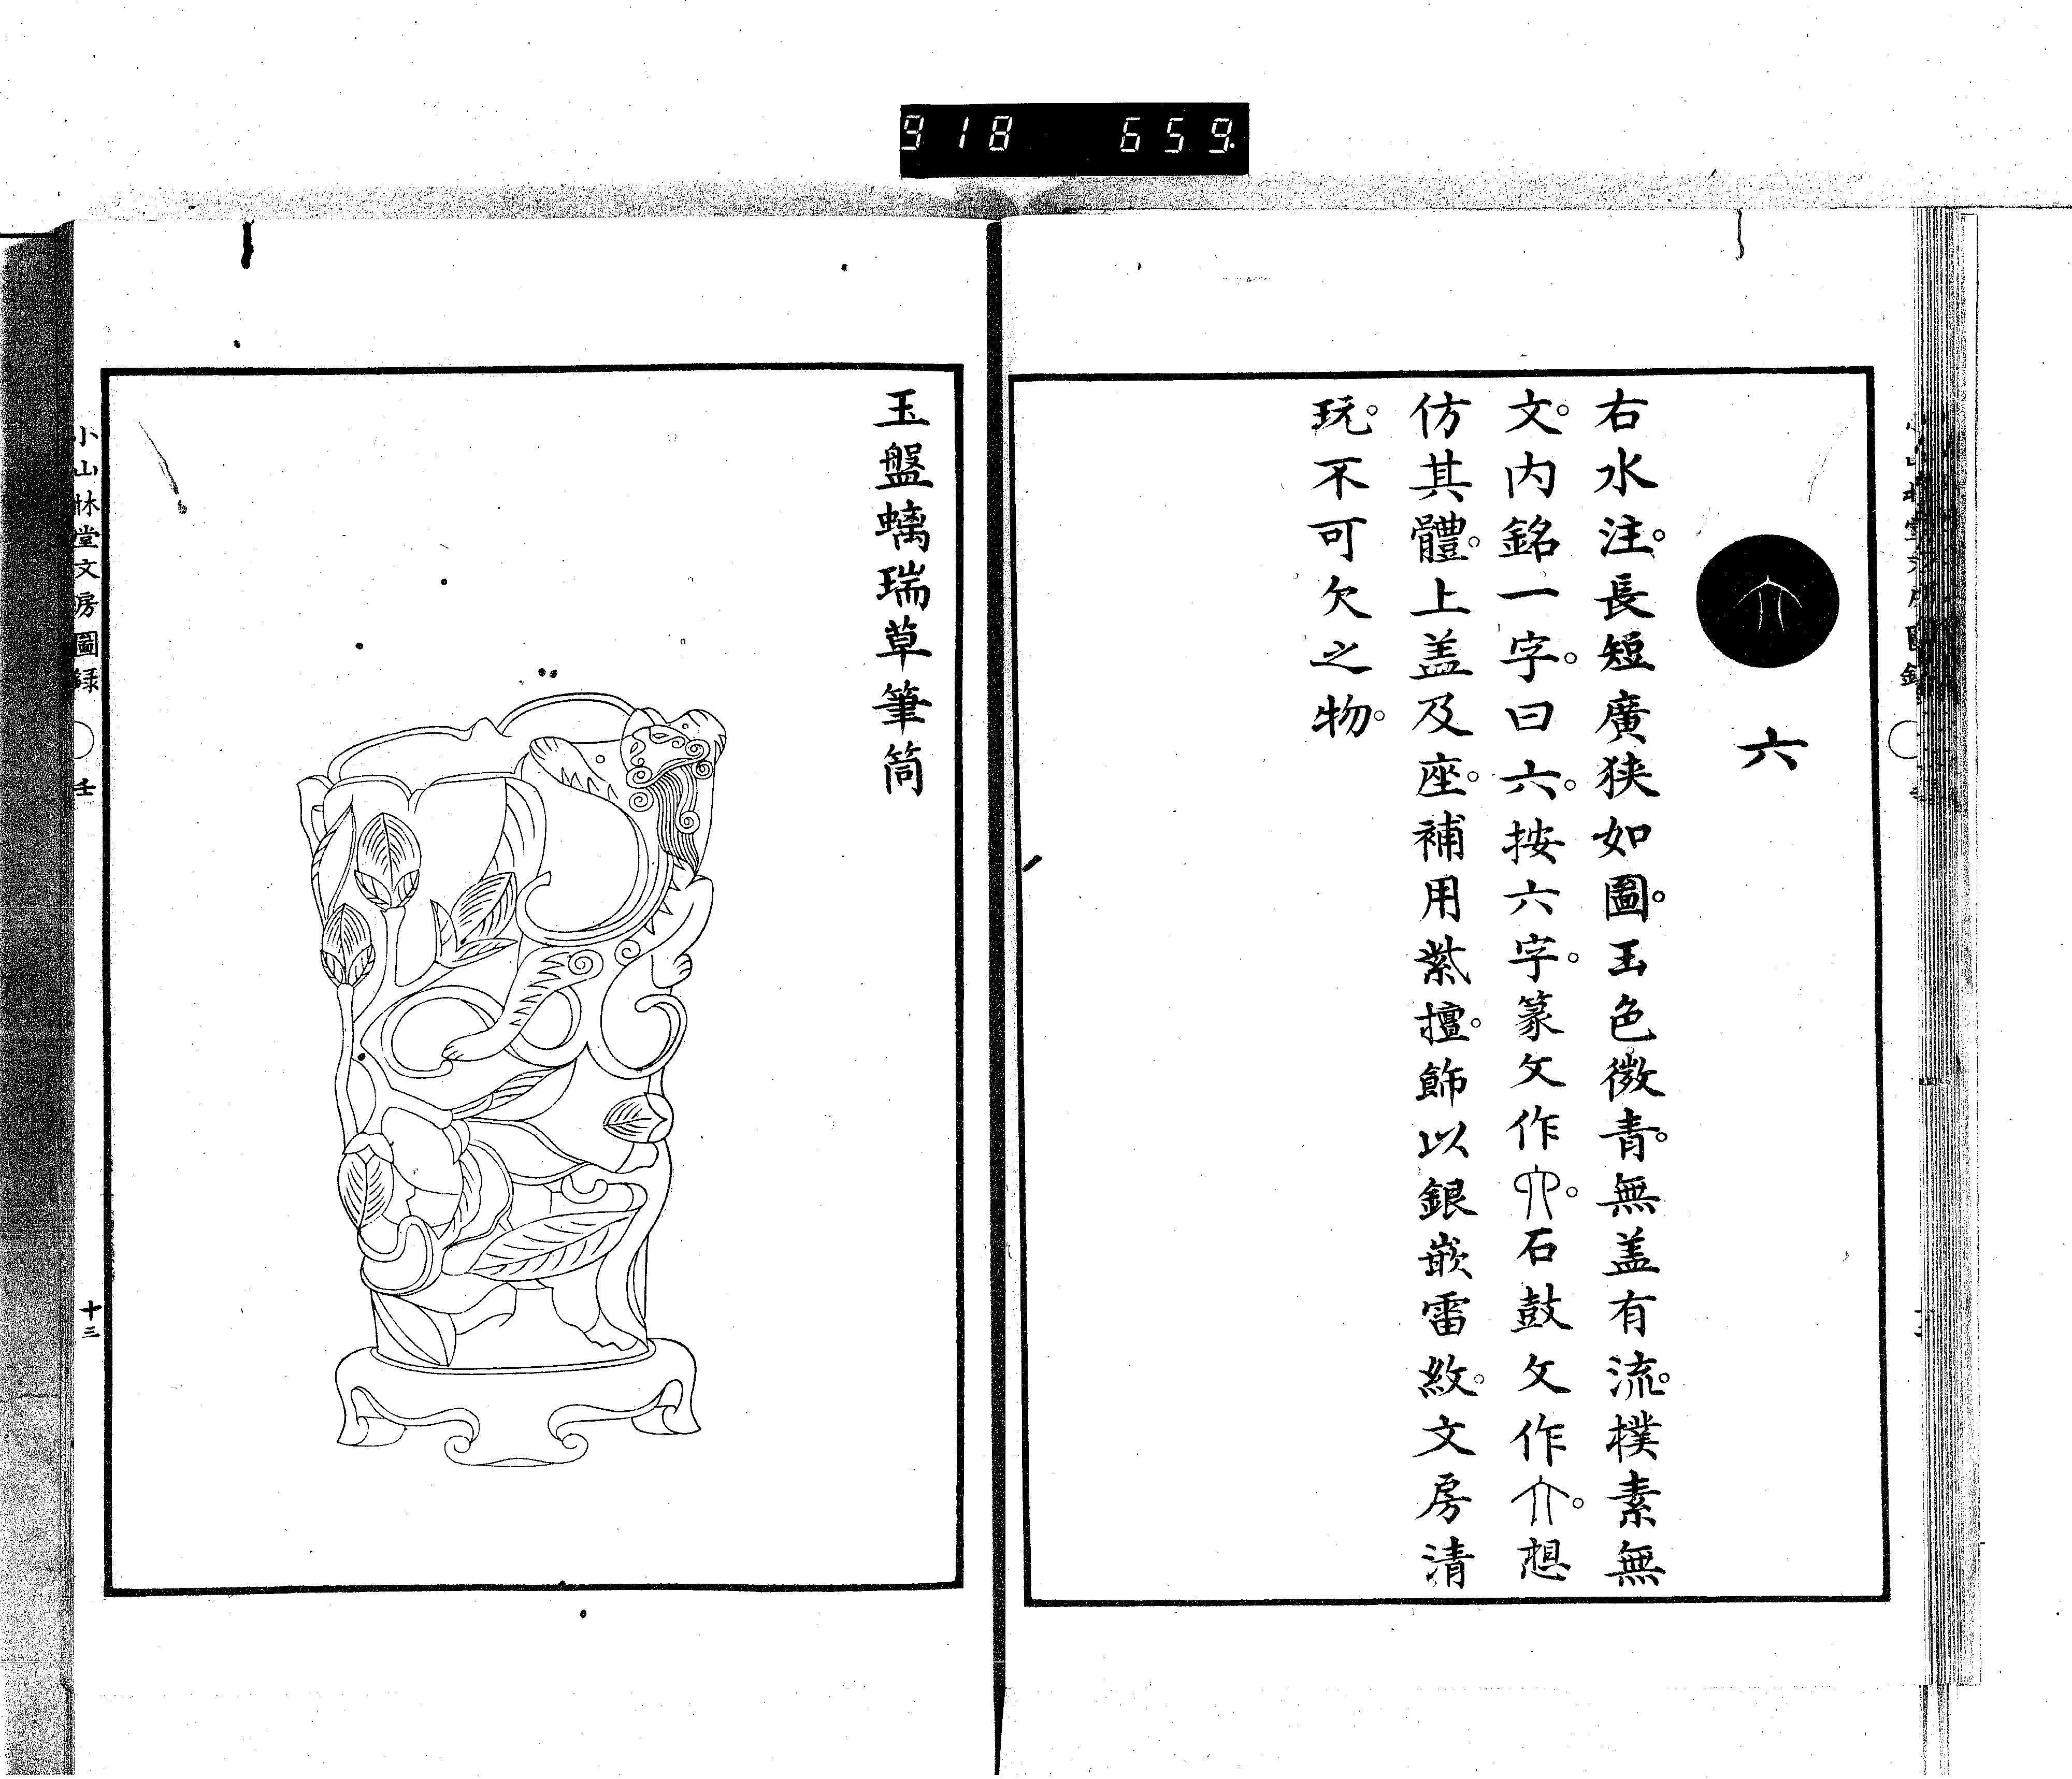 918 659.
六
右水注。長短廣狹如圖。玉色微青。無盖有流。樸素無
文。内銘一字。曰六。按六字。篆文作𠫪。石鼓文作𠆢。想
仿其體。上盖及座。補用紫檀。飾以銀嵌雷紋。文房清
玩。不可欠之物。
玉盤螭瑞草筆筒
小山林堂文房圖録 〇 壬
十三